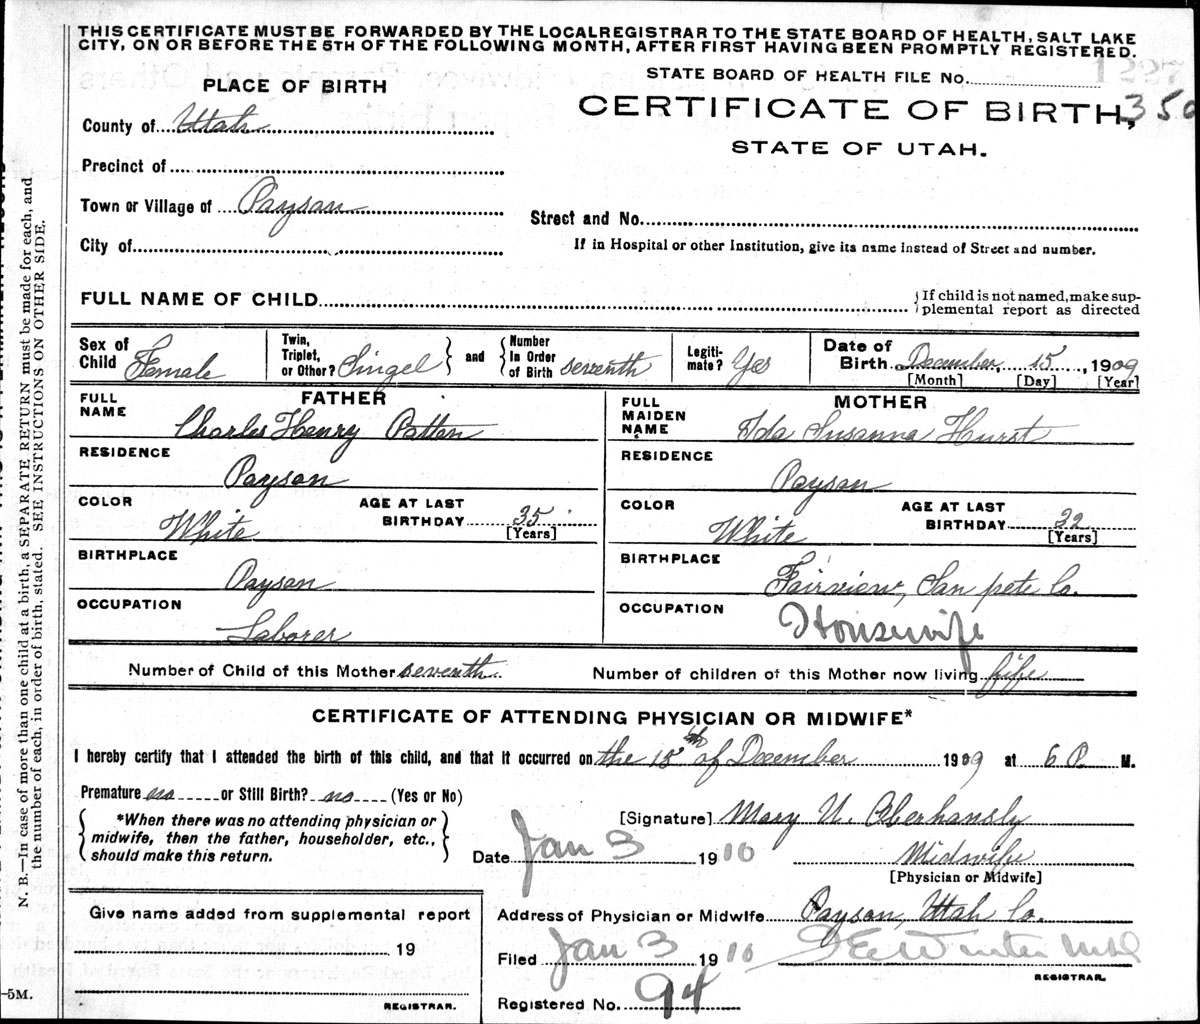 THIS CERTIFICATE MUST BE FORWARDED BY THE LOCAL REGISTRAR TO THE STATE BOARD OF HEALTH, SALT LAKE
CITY, ON OR BEFORE THE 5TH OF THE FOLLOWING MONTH, AFTER FIRST HAVING BEEN PROMPTLY REGISTERED.
STATE BOARD OF HEALTH FILE No.
1227
PLACE OF BIRTH
CERTIFICATE OF BIRTH,
350
STATE OF UTAH.
County of Utah
Precinct of
Town or Village of Payson
Street and No.
City of
If in Hospital or other Institution, give its name instead of Street and number.
FULL NAME OF CHILD
{If child is not named, make sup-
plemental report as directed
Sex of Child Female
Twin, Triplet, or Other? Singel
and
Number In Order of Birth seventh
Legiti-mate? Yes
Date of Birth December, 15, 1909
[Month] [Day] [Year]
FATHER
FULL NAME Charles Henry Patten
RESIDENCE Payson
COLOR White
AGE AT LAST BIRTHDAY 35
[Years]
BIRTHPLACE Payson
OCCUPATION Laborer
MOTHER
FULL MAIDEN NAME Ida Susanna Hurst
RESIDENCE Payson
COLOR White
AGE AT LAST BIRTHDAY 32
[Years]
BIRTHPLACE Fairview, San pete Co.
OCCUPATION Housewife
Number of Child of this Mother seventh.
Number of children of this Mother now living fife
CERTIFICATE OF ATTENDING PHYSICIAN OR MIDWIFE*
I hereby certify that I attended the birth of this child, and that it occurred on the 15th of December 1909 at 6 P. M.
Premature no or Still Birth? no (Yes or No)
*When there was no attending physician or
midwife, then the father, householder, etc.,
should make this return.
[Signature] Mary U. Oberhansly
Date Jan 3 1910
Midwife
[Physician or Midwife]
Give name added from supplemental report
19
REGISTRAR.
Address of Physician or Midwife Payson, Utah Co.
Filed Jan 3 1910
Winter
REGISTRAR.
Registered No. 94
—5M.
N. B.—In case of more than one child at a birth, a SEPARATE RETURN must be made for each, and
the number of each, in order of birth, stated. SEE INSTRUCTIONS ON OTHER SIDE.